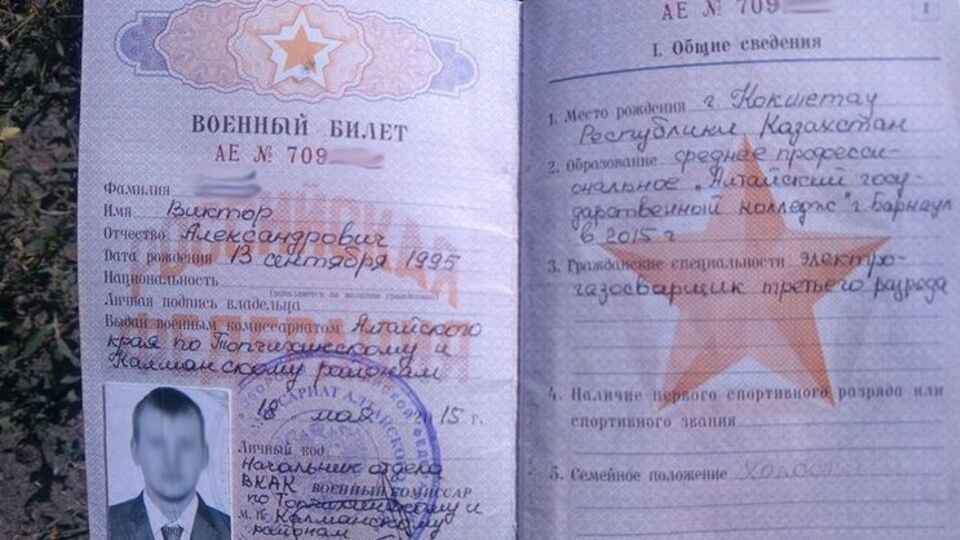 ВОЕННЫЙ БИЛЕТ
АЕ № 709
Фамилия
Имя Виктор
Отчество Александрович
Дата рождения 13 сентября 1995
Национальность
Личная подпись владельца
Выдан военным комиссариатом Алтайского
края по Топчихинскому и
Калманскому районам
18 мая 2015 г.
Личный код
Начальник отдела
ВКАК ВОЕННЫЙ КОМИССАР
по Топчихинскому и
М. П. Калманскому
районам
АЕ № 709
1
I. Общие сведения
1. Место рождения г. Кокшетау
Республики Казахстан
2. Образование среднее професси-
ональное "Алтайский госу-
дарственный колледж" г. Барнаул
в 2015 г
3. Гражданские специальности электро-
газосварщик третьего разряда
4. Наличие первого спортивного разряда или
спортивного звания
5. Семейное положение холост